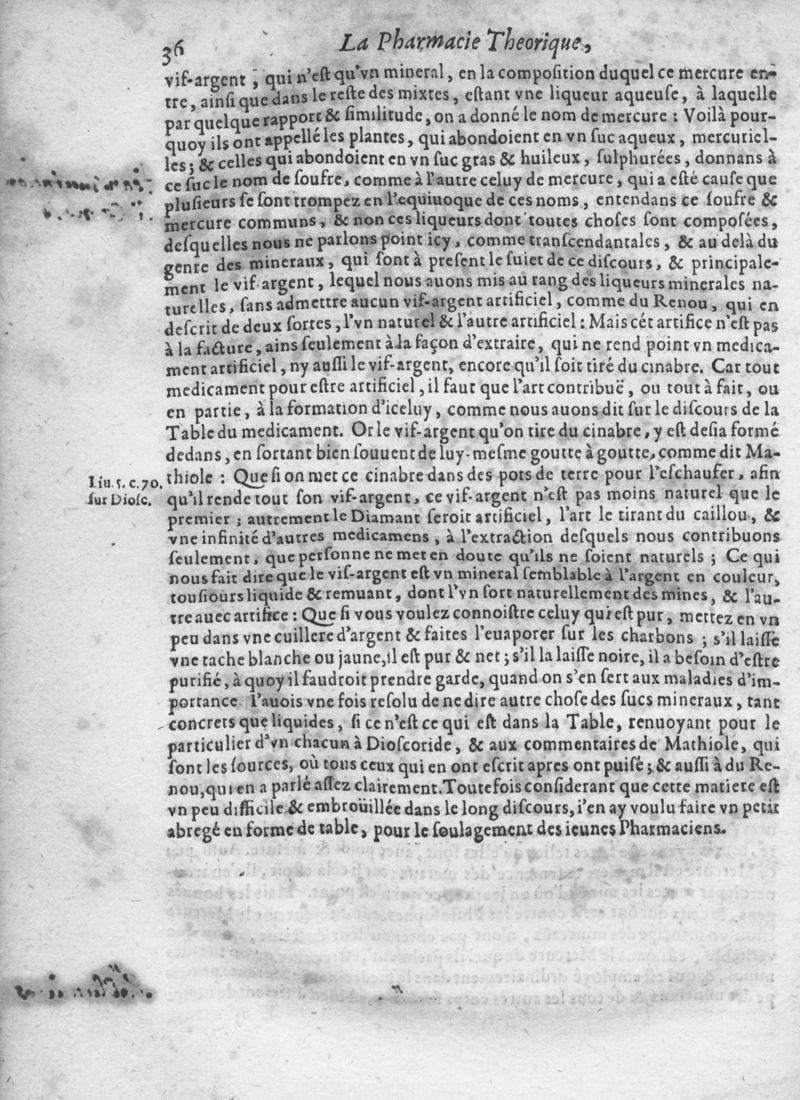 36
La Pharmacie Theorique,
vif-argent, qui n'eſt qu'vn mineral, en la compoſition duquel ce mercure en-
tre, ainſi que dans le reſte des mixtes, eſtant vne liqueur aqueuſe, à laquelle
par quelque rapport & ſimilitude, on a donné le nom de mercure : Voilà pour-
quoy ils ont appellé les plantes, qui abondoient en vn ſuc aqueux, mercuriel-
les; & celles qui abondoient en vn ſuc gras & huileux, ſulphurées, donnans à
ce ſuc le nom de ſoufre, comme à l'autre celuy de mercure, qui a eſté cauſe que
pluſieurs ſe ſont trompez en l'equiuoque de ces noms, entendans ce ſoufre &
mercure communs, & non ces liqueurs dont toutes choſes ſont compoſées,
deſquelles nous ne parlons point icy, comme tranſcendantales, & au delà du
genre des mineraux, qui ſont à preſent le ſuiet de ce diſcours, & principale-
ment le vif-argent, lequel nous auons mis au rang des liqueurs minerales na-
turelles, ſans admettre aucun vif-argent artificiel, comme du Renou, qui en
deſcrit de deux ſortes, l'vn naturel & l'autre artificiel : Mais cét artifice n'eſt pas
à la facture, ains ſeulement à la façon d'extraire, qui ne rend point vn medica-
ment artificiel, ny auſſi le vif-argent, encore qu'il ſoit tiré du cinabre. Car tout
medicament pour eſtre artificiel, il faut que l'art contribuë, ou tout à fait, ou
en partie, à la formation d'iceluy, comme nous auons dit ſur le diſcours de la
Table du medicament. Or le vif-argent qu'on tire du cinabre, y eſt deſia formé
dedans, en ſortant bien ſouuent de luy-meſme goutte à goutte, comme dit Ma-
Liu. 5. c. 70.
ſur Dioſc.
thiole : Que ſi on met ce cinabre dans des pots de terre pour l'eſchaufer, afin
qu'il rende tout ſon vif-argent, ce vif-argent n'eſt pas moins naturel que le
premier; autrement le Diamant ſeroit artificiel, l'art le tirant du caillou, &
vne infinité d'autres medicamens, à l'extraction deſquels nous contribuons
ſeulement, que perſonne ne met en doute qu'ils ne ſoient naturels; Ce qui
nous fait dire que le vif-argent eſt vn mineral ſemblable à l'argent en couleur,
touſiours liquide & remuant, dont l'vn ſort naturellement des mines, & l'au-
tre auec artifice : Que ſi vous voulez connoiſtre celuy qui eſt pur, mettez en vn
peu dans vne cuillere d'argent & faites l'euaporer ſur les charbons; s'il laiſſe
vne tache blanche ou jaune, il eſt pur & net; s'il la laiſſe noire, il a beſoin d'eſtre
purifié, à quoy il faudroit prendre garde, quand on s'en ſert aux maladies d'im-
portance. I'auois vne fois reſolu de ne dire autre choſe des ſucs mineraux, tant
concrets que liquides, ſi ce n'eſt ce qui eſt dans la Table, renuoyant pour le
particulier d'vn chacun à Dioſcoride, & aux commentaires de Mathiole, qui
ſont les ſources, où tous ceux qui en ont eſcrit apres ont puiſé; & auſſi à du Re-
nou, qui en a parlé aſſez clairement. Toutefois conſiderant que cette matiere eſt
vn peu difficile & embroüillée dans le long diſcours, i'en ay voulu faire vn petit
abregé en forme de table, pour le ſoulagement des ieunes Pharmaciens.